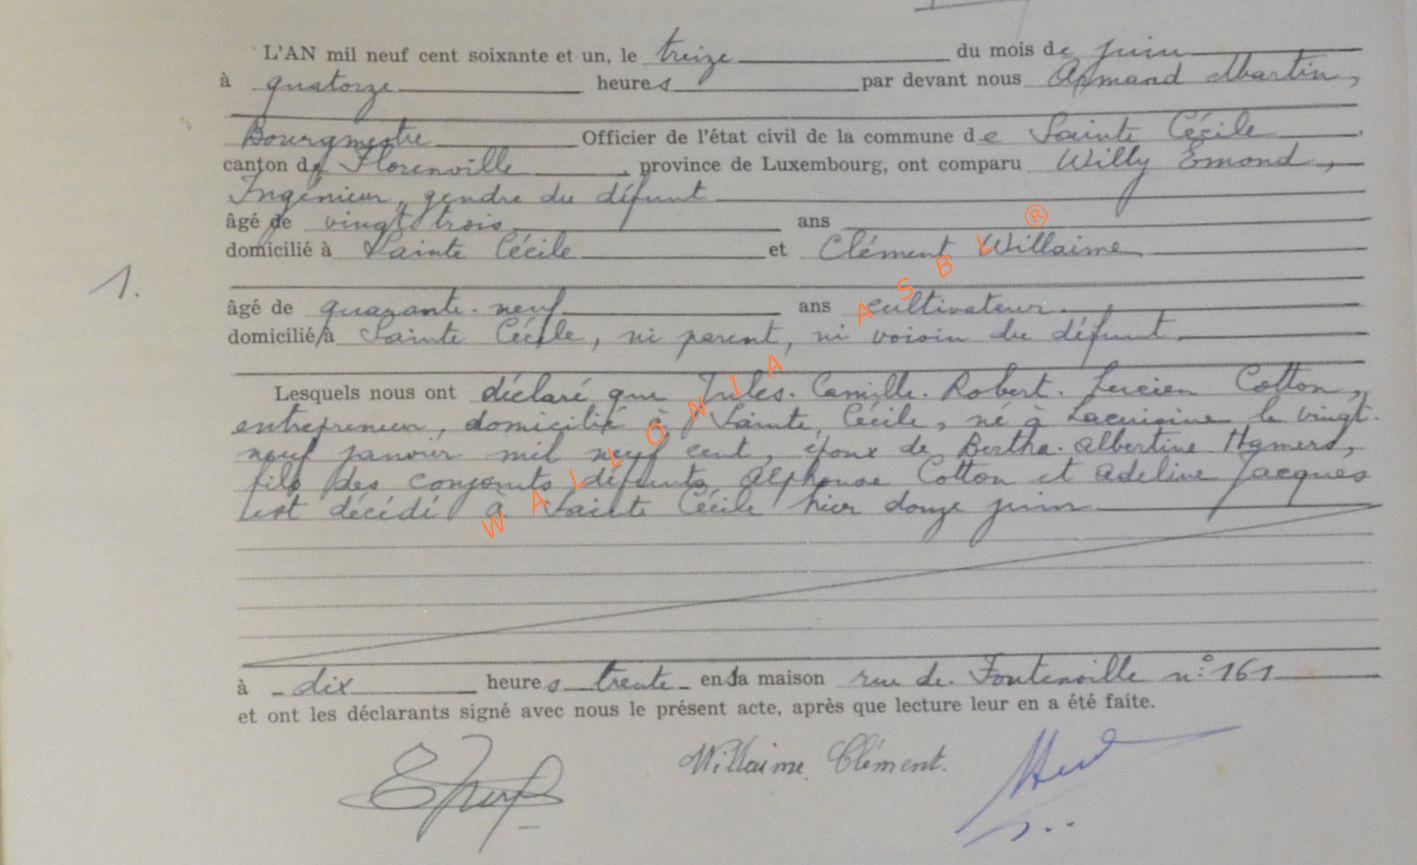 L'AN mil neuf cent soixante et un, le treize du mois de juin
à quatorze heures par devant nous Armand Martin,
Bourgmestre Officier de l'état civil de la commune de Sainte Cécile
canton de Florenville, province de Luxembourg, ont comparu Willy Emond,
Ingénieur, gendre du défunt
âgé de vingt trois ans
domicilié à Sainte Cécile et Clément Willaime
1.
âgé de quarante-neuf ans cultivateur
domicilié à Sainte Cécile, ni parent, ni voisin du défunt.
Lesquels nous ont déclaré que Jules. Camille. Robert. Lucien Cotton,
entrepreneur, domicilié à Sainte Cécile, né à Lacuisine le vingt.
neuf janvier mil neuf cent, époux de Bertha. Albertine Hamers,
fils des conjoints défunts Alphonse Cotton et Adeline Jacques
est décédé à Sainte Cécile hier douze juin
à dix heures trente en sa maison rue de Fontenoille n° 161
et ont les déclarants signé avec nous le présent acte, après que lecture leur en a été faite.
Willaime Clément.
WALLONIA ASBL ®